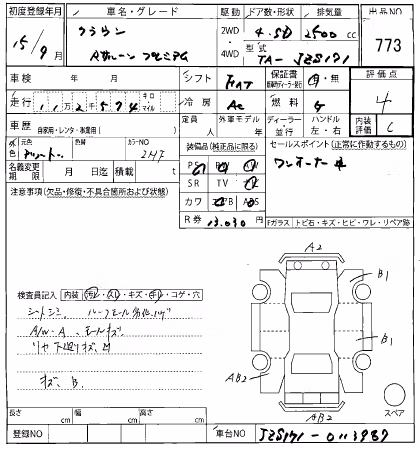 初度登録年月 車名・グレード 駆動 ドア数・形状 排気量 出品NO
15/9月 クラウン 2WD 4.SD 2500 cc 773
ロイヤルサルーン プレミアム 4WD 型式 TA- JZS171
車検 年 月 シフト FAT 保証書 有・無 評価点
走行 112574 キロ マイル 冷房 AC 燃料 G 4
車歴 自家用・レンタ・事業用( ) 定員 人 外車モデル 年 ディーラー・並行 ハンドル 左・右 内装評価 C
外色 元色 色替 カラーNO 2H7 装備品(純正品に限る) セールスポイント(正常に作動するもの)
名義変更期限 月 日迄 積載 t PS PW ワンオーナー車
注意事項(欠品・修復・不具合箇所および状態) SR TV
カワ AB
R券 13,030 ¥ Fガラス トビ石・キズ・ヒビ・ワレ・リペア跡
A2
B1
検査員記入 内装 汚れ・スレ・キズ・切れ・コゲ・穴
シートシミ、ルーフモール劣化
A/W-A、モールキズ B1
リヤ下廻りキズ、凹
キズ、B AB2
AB2 スペア
長さ cm 幅 cm 高さ cm
登録NO 車台NO JZS171-0113989